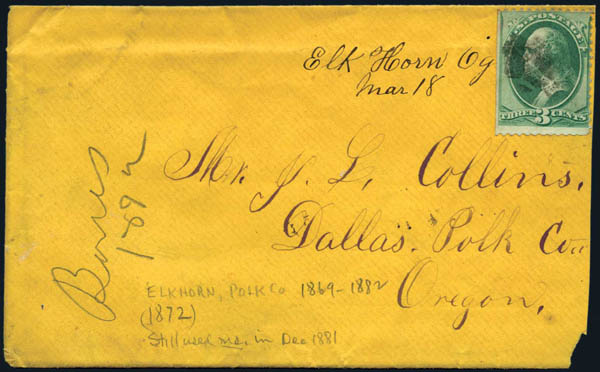 U.S. POSTAGE
Elk Horn Ogn
Mar 18
THREE 3 CENTS
Mr. J. L. Collins,
Dallas. Polk Co
Oregon,
ELKHORN, POLK Co 1869-1882
(1872)
Still used ms. in Dec 1881